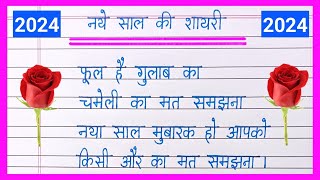 2024 नये साल की शायरी 2024
फूल है गुलाब का
चमेली का मत समझना
नया साल मुबारक हो आपको
किसी और का मत समझना।